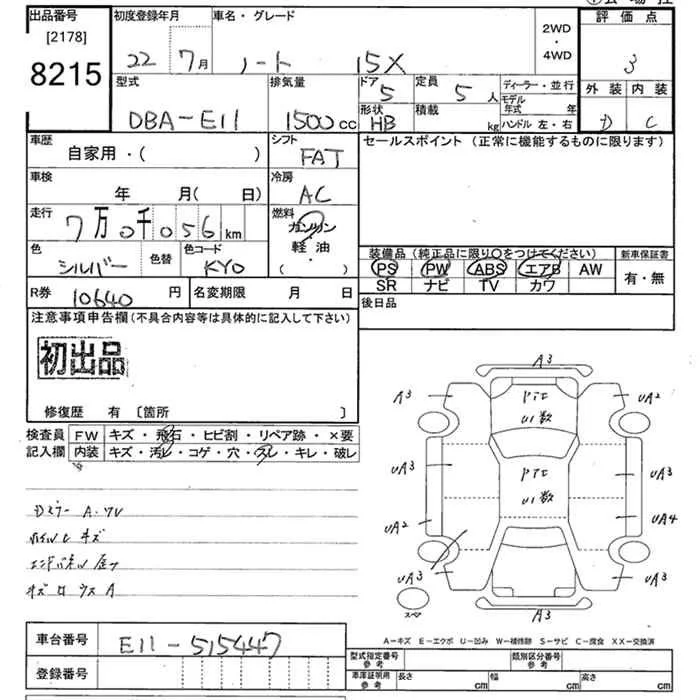 出品番号 初度登録年月 車名・グレード 評価点
[2178] 22 7月 ノート 15X 2WD・4WD 3
8215
型式 排気量 ドア 定員 ディーラー・並行 外装 内装
DBA-E11 1500cc 5 5人 モデル年式 年 D C
形状 積載 HB kg ハンドル 左・右
車歴 シフト セールスポイント (正常に機能するものに限ります)
自家用・( ) FAT
車検 冷房
年 月( 日) AC
走行 燃料
7万0千056km ガソリン
軽油
( ・ )
色 シルバー 色替 色コード KY0
装備品 (純正品に限り○をつけてください) 新車保証書
PS PW ABS エアB AW 有・無
SR ナビ TV カワ
R券 10640円 名変期限 月 日
後日品
注意事項申告欄(不具合内容等は具体的に記入して下さい)
初出品
修復歴 有 〔箇所 〕
検査員 FW キズ・飛石・ヒビ割・リペア跡・×要
記入欄 内装 キズ・汚レ・コゲ・穴・スレ・キレ・破レ
A3
A3 UA2
UA3 UA3
UA2 UA4
UA3 UA3
A3
スペア
A-キズ E-エクボ U-凹み W-補修跡 S-サビ C-腐食 XX-交換済
車台番号 E11-515447
登録番号
型式指定番号 参考 類別区分番号 参考
車庫証明用 参考 長さ cm 幅 cm 高さ cm